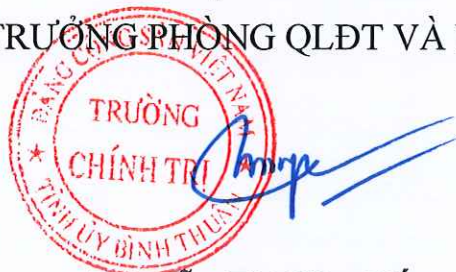 TRƯỞNG PHÒNG QLĐT VÀ
ĐẢNG CỘNG SẢN VIỆT NAM
TRƯỜNG
CHÍNH TRỊ
TỈNH ỦY BÌNH THUẬN